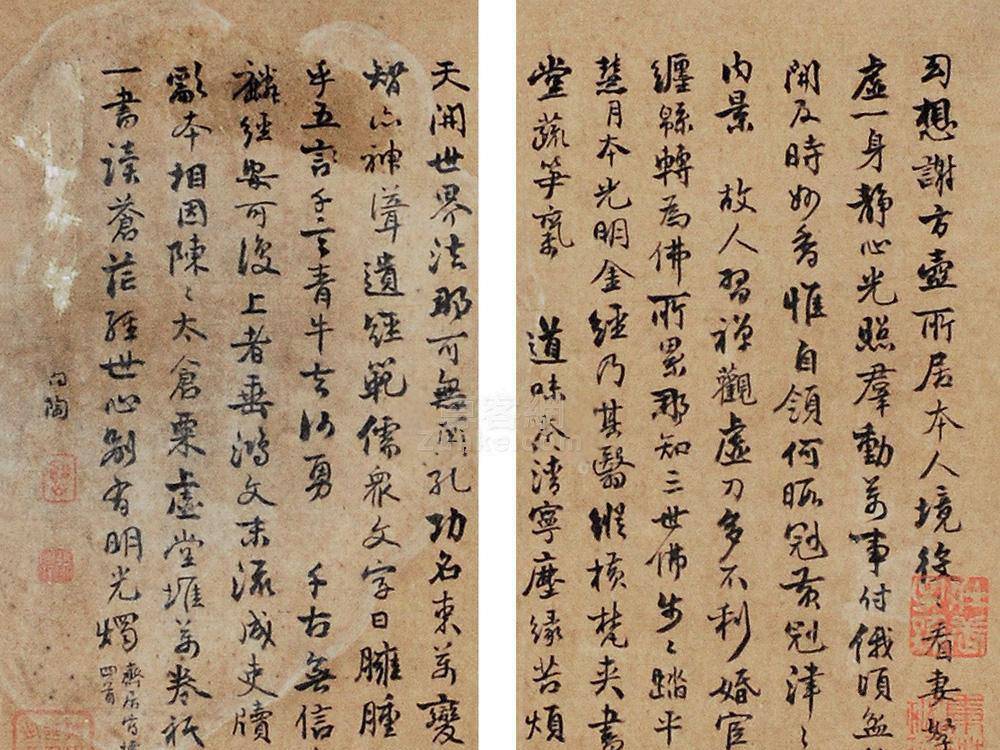 想謝方壺所居本人境看妻孥
虛一身靜心光照羣動萬事付俄頃盆
開及時妙香惟自領何暇冠黃冠津〻
內景 故人習禪觀慮刀多不利婚宦
纏緜轉為佛所累那知三世佛步〻踏平
慧月本光明金經乃其翳縱橫梵夾書
堂蔬筍氣 道味本清寧塵緣苦煩
天開世界法那可無孔功名束萬變
智亦神聳遺經範儒眾文字日臃腫
乎五言千言青牛去何勇 千古無信
麟經安可復上者垂鴻文末流成吏牘
本相因陳〻太倉粟虛堂堆萬卷祇
一書讀蒼茫經世心別有明光燭
齋居
四首